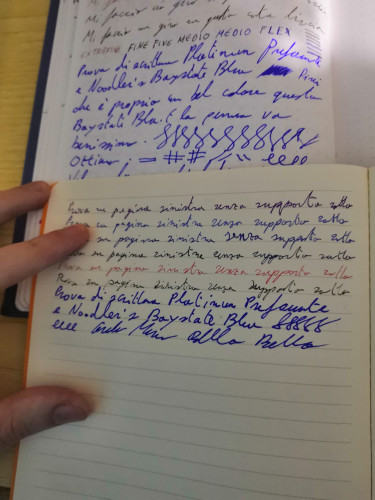 Mi faccio un giro con questa
Mi faccio un giro con questa
EXTRAFINE FINE FINE MEDIO MEDIO FLEX
Prova di scrittura Platinum Preferante
e Noodler's Baystate Blue
che è proprio un bel colore questo
Baystate Blu. E la penna va
benissimo. 8888888888
Ottimo ; = ## eeee
Prova su pagina sinistra senza supporto sotto
Prova su pagina sinistra senza supporto sotto
su pagina sinistra senza supporto sotto
su pagina sinistra senza supporto sotto
Prova su pagina sinistra senza supporto sotto
Prova su pagina sinistra senza supporto sotto
Prova di scrittura Platinum Preferante
e Noodler's Baystate Blue 88888
eeee alla Bella